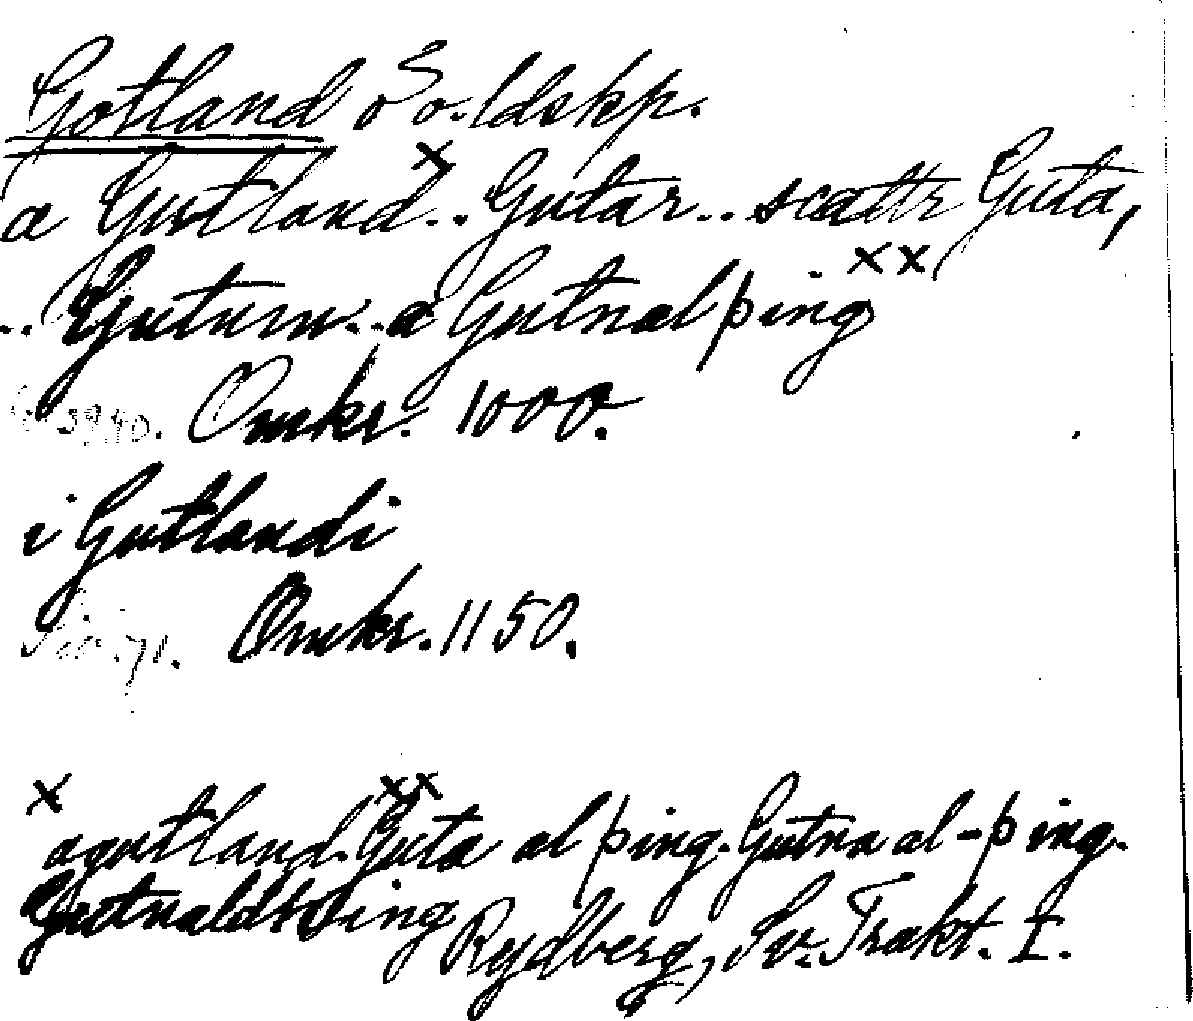 Gotland ö o. ldskp.
a Gutland x.. Gutar.. scattr Guta,
.. Gutum.. a Gutnalþing xx
39,40. Omkr. 1000.
i Gutlandi
71. Omkr. 1150.
x agutland. xx Guta alþing. Gutna al-þing.
Gutnaldhþing Rydberg, Sv. Trakt. I.